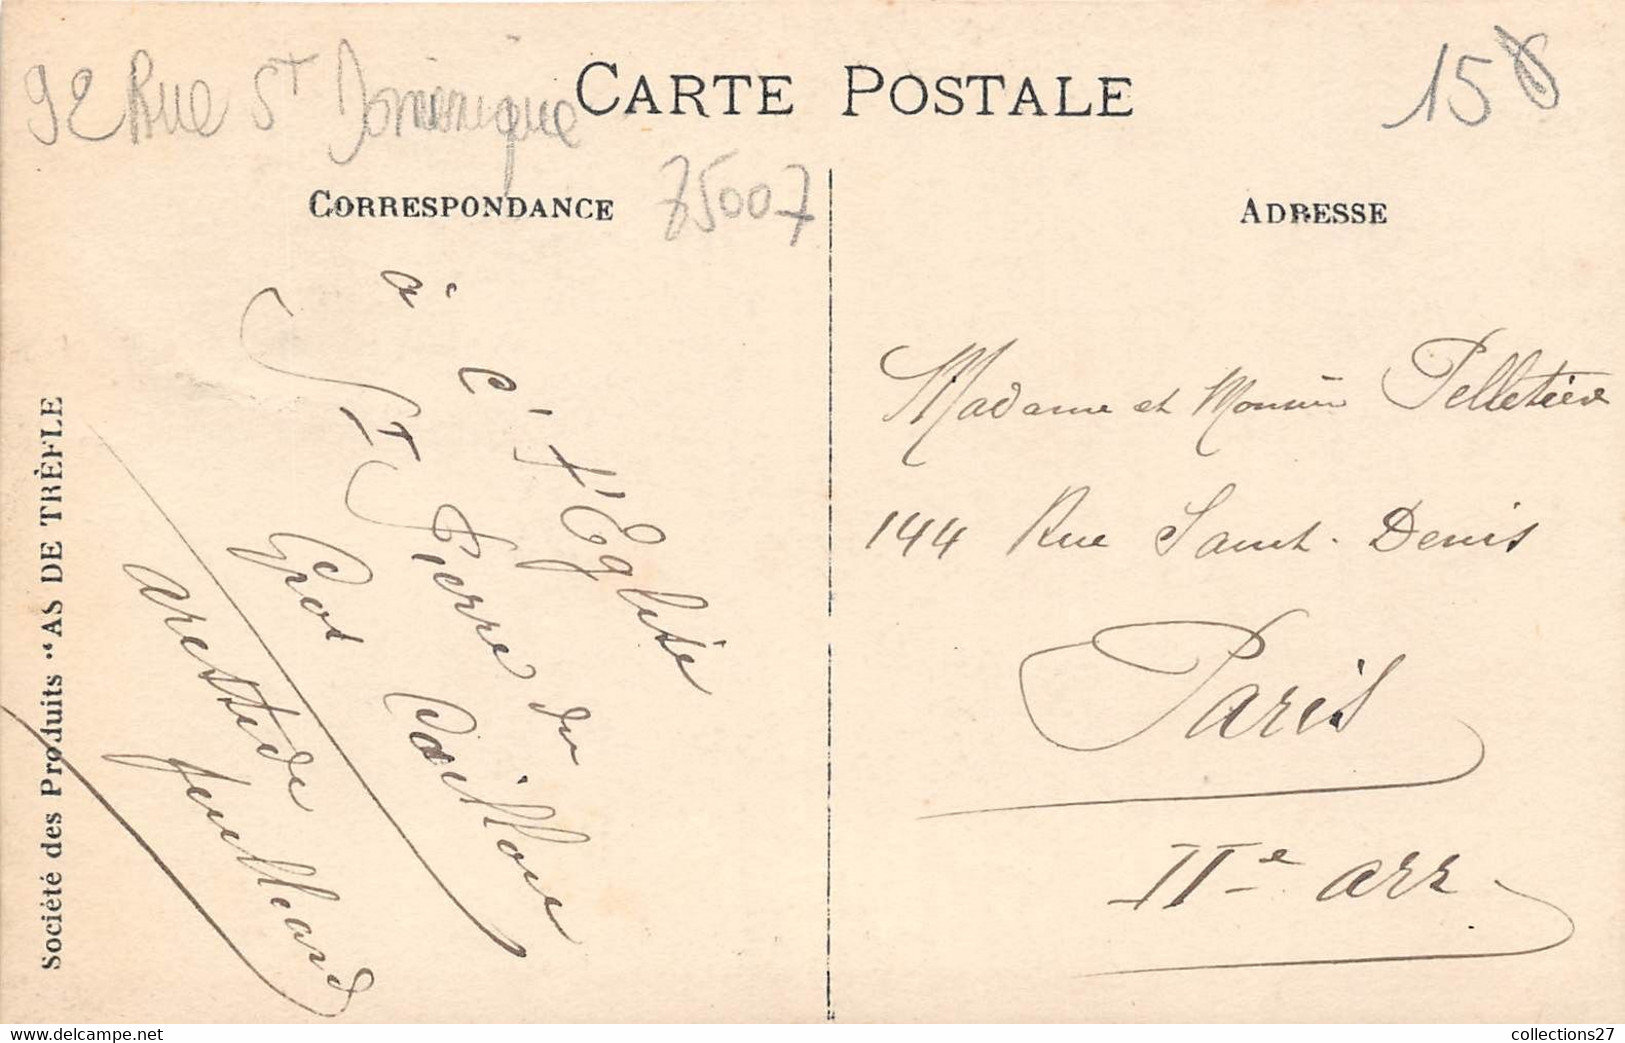 92 Rue St Dominique
75007
150
CARTE POSTALE
CORRESPONDANCE
ADRESSE
à
l'Eglise
St Pierre du
Gros Caillou
Aristide
feuillard
Madame et Monsieur Pelletier
144 Rue Saint-Denis
Paris
IIe arr
Société des Produits "AS DE TRÈFLE
collections27